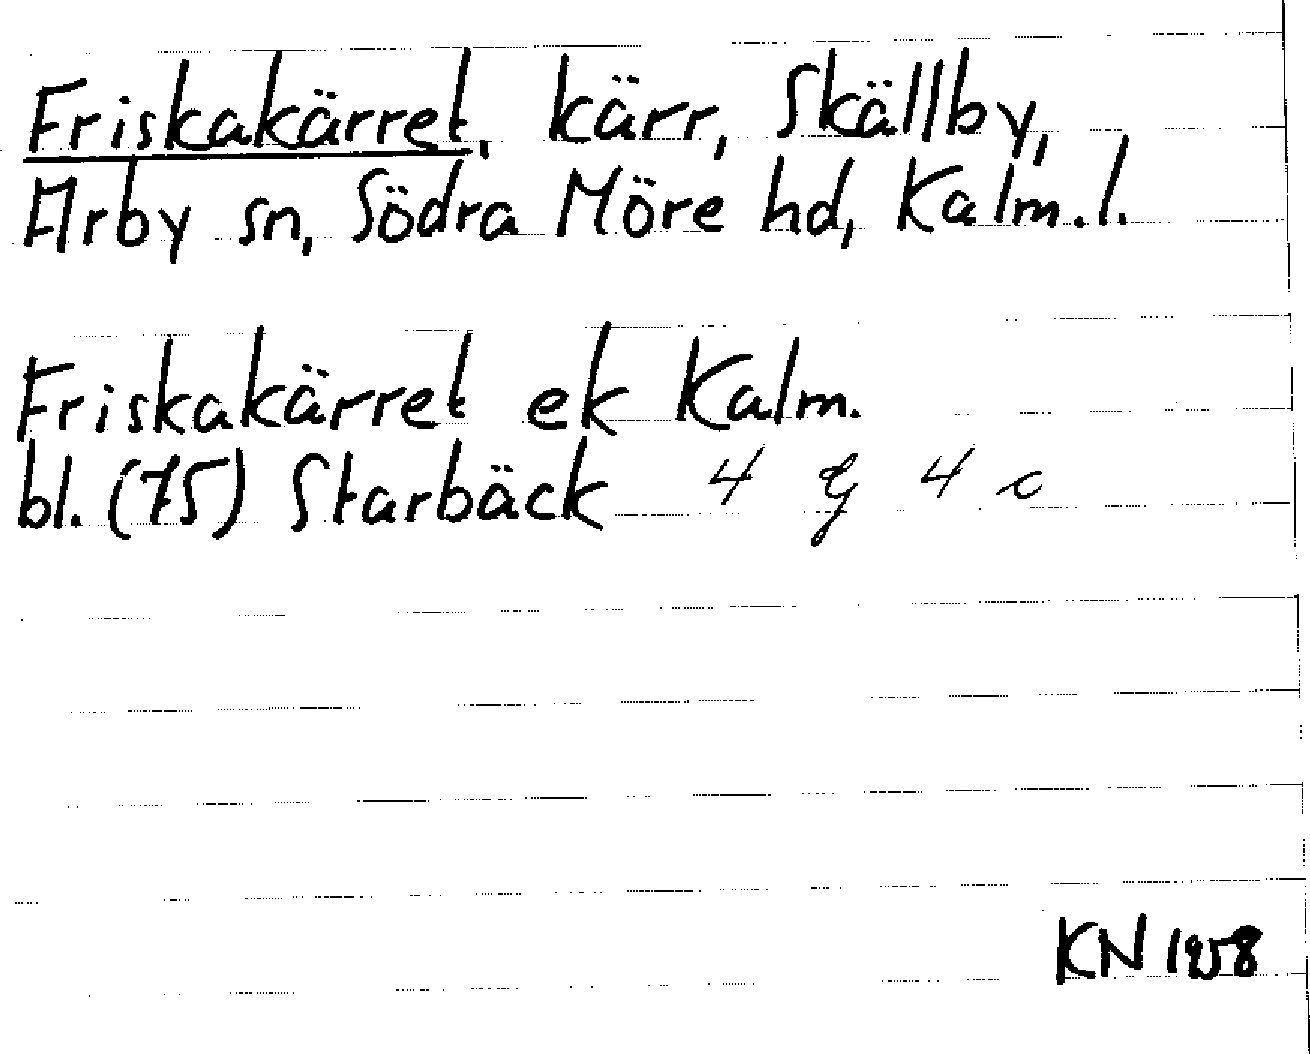 Friskakärret, kärr, Skällby,
Arby sn, Södra Möre hd, Kalm.l.
Friskakärret ek Kalm.
bl. (75) Starbäck 4 G 4 c
KN